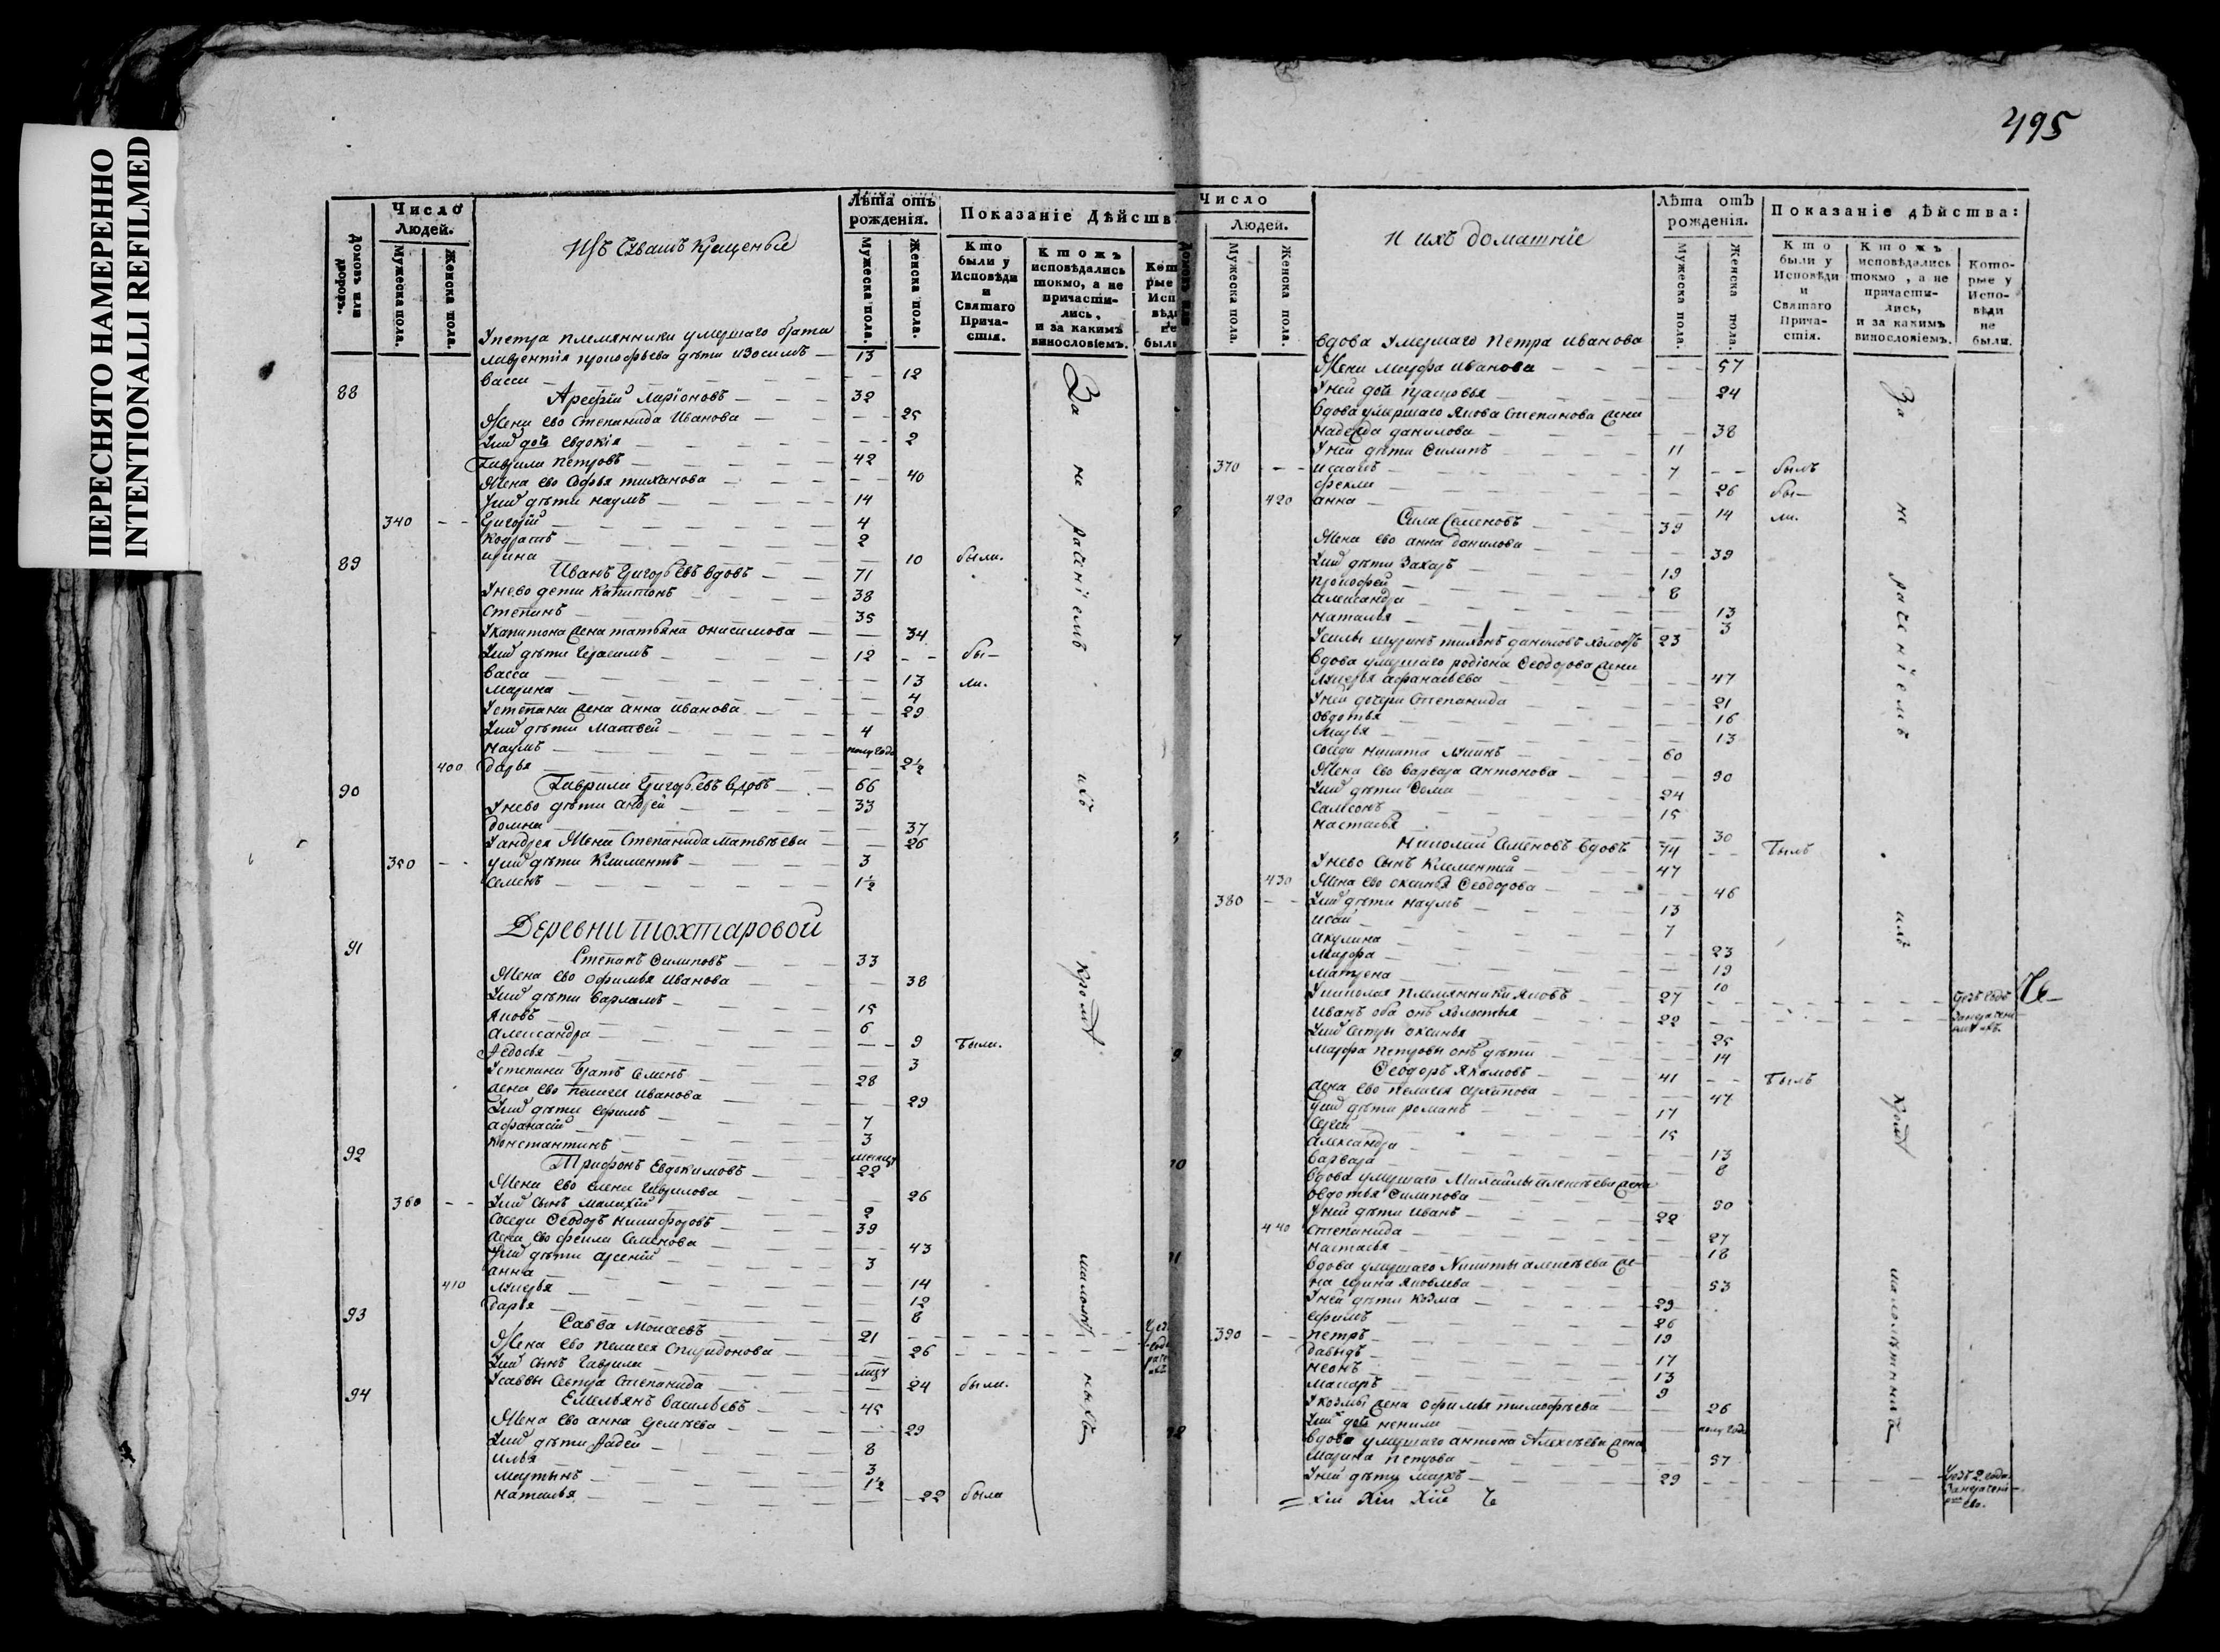 ПЕРЕСНЯТО НАМЕРЕННО
INTENTIONALLI REFILMED
495
Домовъ или дворовъ.
Число Людей.
Мужеска пола.
Женска пола.
Изъ Чувашъ Крещеные
Лѣта отъ рожденія.
Мужеска пола.
Женска пола.
Показаніе Дѣйств
Кто были у Исповѣди и Святаго Причастія.
Ктожъ исповѣдались токмо, а не причастились, и за какимъ винословіемъ.
У петра племянники умершаго брата
лаврентія прокофьева дѣти изосимъ — 13
васса — 12
88 Арефій Ларіоновъ — 32
Жена ево Степанида Иванова — 25
Уних дочь евдокія — 2
Гаврила петровъ — 42
Жена ево Софья тиханова — 40
Уних дѣти наумъ — 14
340 — Григорій — 4
Кодратъ — 2
ирина — 10 были.
89 Иванъ Григорьевъ вдовъ — 71
Унево дети капитонъ — 38
Степанъ — 35
Укапитона жена татьяна онисимова — 34
Уних дѣти Герасимъ — 12 — бы—
васса — 13 ли.
Марина — 4
Устепана жена анна иванова — 29
Уних дѣти Матвей — 4
наумъ — полу года
400 дарья — 2½
90 Гаврила Григорьевъ вдовъ — 66
Унево дѣти андрей — 33
домна — 37
Уандрея Жена Степанида матвѣева — 26
350 — Уних дѣти Климентъ — 3
семенъ — 1½
Деревни тохтаровой
91 Степанъ Филиповъ — 33
Жена ево офимья Иванова — 38
Уних дѣти варламъ — 15
Яковъ — 6
Александра — 9 были.
Федосья — 3
Устепана братъ семенъ — 28
жена ево пелагея иванова — 29
Уних дѣти ефимъ — 7
афанасій — 3
константинъ — месяцъ
92 Трифонъ Евдокимовъ — 22
Жена ево елена Гаврилова — 26
360 — Уних сынъ малихій — 2
соседи Феодоръ никифоровъ — 39
жена ево фекла Семенова — 43
Уних дѣти арсеній — 3
анна — 14
410 лукерья — 12
дарья — 8
93 Савва Моисеевъ — 21
Жена ево пелагея Спиридонова — 26
Уних сынъ Гаврила —
Усаввы сестра Степанида — 24 были.
94 Емельянъ васильевъ — 45
Жена ево анна Сергѣева — 29
Уних дѣти Фадей — 8
илья — 3
мартынъ — 1½
наталья — 22 была
За не раченіемъ ихъ кромѣ малолѣтныхъ
Число Людей.
Мужеска пола.
Женска пола.
и ихъ домашніе
Лѣта отъ рожденія.
Мужеска пола.
Женска пола.
Показаніе дѣйства:
Кто были у Исповѣди и Святаго Причастія.
Ктожъ исповѣдались токмо, а не причастились, и за какимъ винословіемъ.
Которые у Исповѣди не были.
вдова умершаго петра иванова
Жена марфа иванова — 57
Уней дочь прасковья — 24
вдова умершаго Якова Степанова жена
надежда данилова — 38
Уней дѣти Филипъ — 11
370 — исаакъ — 7 — былъ
фекла — 26 бы—
420 анна — 14 ли.
Сила Семеновъ — 39
Жена ево анна данилова — 39
Уних дѣти Захаръ — 19
прокофей — 8
александра — 13
наталья — 3
Усилы шуринъ тихонъ даниловъ холостъ 23
вдова умершаго родіона Феодорова жена
лукерья афанасьева — 47
Уней дочери Степанида — 21
овдотья — 16
Марья — 13
соседи никита лукинъ — 60
Жена ево варвара антонова — 90
Уних дѣти Фома — 24
самсонъ — 15
настасья — 30
Николай Семеновъ вдовъ — 74 — былъ
Унево сынъ Клементей — 47
430 Жена ево оксинья Феодорова — 46
380 — Уних дѣти наумъ — 13
исай — 7
акулина — 23
Марфа — 19
матрена — 10
Униколая племянники Яковъ — 27
иванъ оба онѣ холостыя — 22
Уних сестры оксинья — 25
марфа петровы онѣ дѣти — 14
Феодоръ Якимовъ — 41 — былъ
жена ево пелагея архипова — 42
Уних дѣти романъ — 17
сергей — 15
Александра — 13
варвара — 8
вдова умершаго михайлы алексѣева жена
овдотья Филипова — 50
Уней дѣти иванъ — 22
440 степанида — 27
настасья — 18
вдова умершаго Никиты алексѣева же—
на ирина Яковлева — 53
Уней дѣти козма — 29
ефимъ — 26
390 — петръ — 19
давыдъ — 17
леонъ — 13
макаръ — 9
Укозмы жена офимья тимофѣева — 26
Уних дочь ненила — полу года
вдова умершаго антона Алексѣева жена
марина петрова — 57
Уней дѣти маркъ — 29
За не раченіемъ ихъ кромѣ малолѣтныхъ